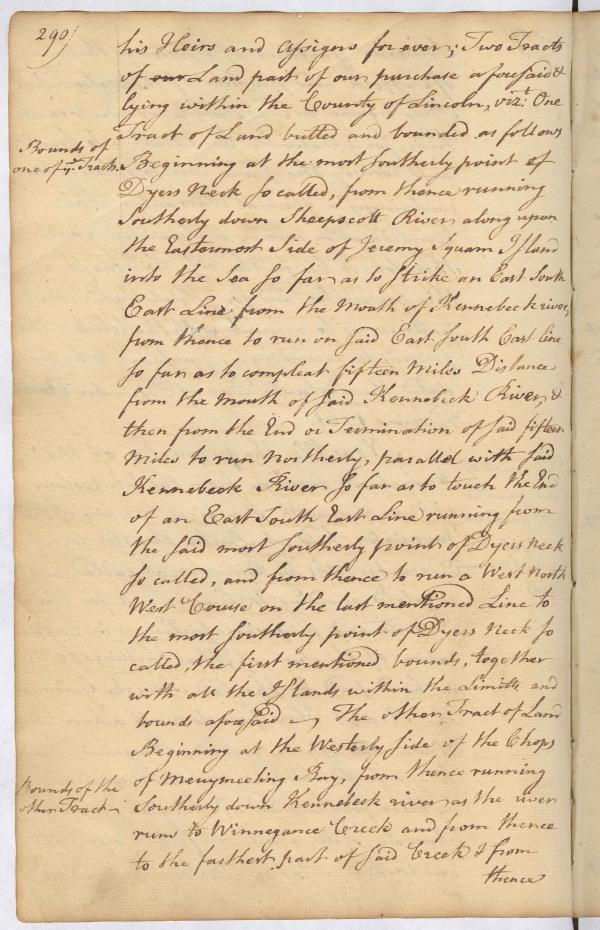 290)
his Heirs and Assigns for ever; Two Tracts
of our Land part of our purchase aforesaid &
lying within the County of Lincoln, vizt. One
Tract of Land butted and bounded as follows
Bounds of
one of ye. Tracts.
Beginning at the most Southerly point of
Dyers Neck so called, from thence running
Southerly down Sheepscott River along upon
the Eastermost Side of Jeremy Squam Island
into the Sea so far as to strike an East South
East Line from the Mouth of Kennebeck river,
from thence to run on said East South East line
so far as to compleat fifteen Miles Distance
from the Mouth of said Kennebeck River, &
then from the End or Termination of said fifteen
Miles to run Northerly, parallel with said
Kennebeck River so far as to touch the End
of an East South East Line running from
the said most Southerly point of Dyers Neck
so called, and from thence to run a West North
West Course on the last mentioned Line to
the most Southerly point of Dyers Neck so
called, the first mentioned bounds, together
with all the Islands within the Limitts and
bounds aforesaid — The other Tract of Land
Beginning at the Westerly side of the Chops
of Merrymeeting Bay, from thence running
Bounds of the
other Tract
Southerly down Kennebeck river as the river
runs to Winnegance Creek and from thence
to the farthest part of said Creek & from
thence